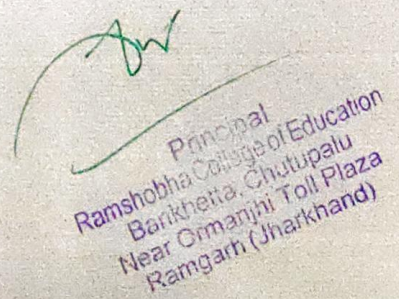 Principal
Ramshobha College of Education
Barikhetta, Chutupalu
Near Ormanjhi Toll Plaza
Ramgarh (Jharkhand)